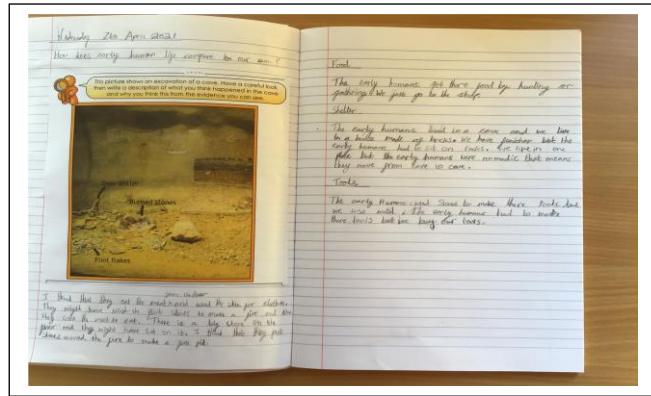 April 2021
How does early human life compare to our own?
This picture shows an excavation of a cave. Have a careful look
then write a description of what you think happened in the cave
and why you think this from the evidence you can see.
Deer antler
Burned stones
Flint flakes
I think that they eat the meat and used the skin for clothes.
They might have used the flint to make a fire and
they the meat to eat. There is a big stone on the
floor and they might have sat on it. I think that they put
stones around the fire to make a fire pit.
Food
The early humans got there food by hunting or
gathering. We just go to the shop.
Shelter
The early humans lived in a cave and we live
in a house made of bricks. We have furniture but the
early humans had to sit on rocks. We live in one
place but the early humans were nomadic that means
they move from cave to cave.
Tools
The early Humans used Stone to make there tools but
we use metal. The early humans had to make
there tools but we buy our tools.